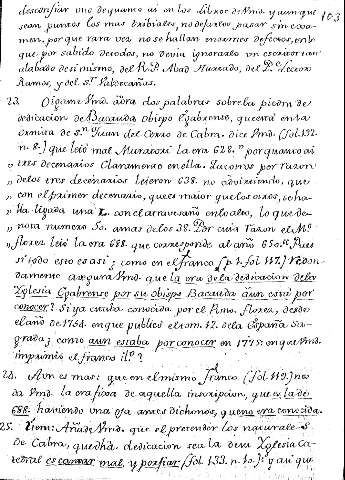 desconfiar uno de quanto ai en los libros de Vmd. y aunque
sean puntos los mas tribiales, no dejarlos pasar sin exa-
men, por que rara vez no se hallan enormes defectos, en lo
que por sabido de todos, no devia ignorarlo un escritor tan
alabado de si mismo, del R. P. Abad Hurtado, del P. Lector
Ramos, y del sr. Valdecañas.
103
23. Oigame Vmd. aora dos palabras sobre la piedra de
dedicacion de Bacauda obispo Egabrense, que está en la
ermita de sn. Juan del Cerro de Cabra. dice Vmd. (fol. 132.
n. 8.) que leió mal Muratori la era 628. por quanto ai
tres decenarios claramente en ella.
de los tres decenarios leieron 638. no advirtiendo, que
con el primer decenario, que es maior que los otros, se ha-
lla ligada una L con el atravesaño en lo alto, lo que de-
nota numero 50. amas de los 38. Por cuia razon el Mo.
florez leió la era 688. que corresponde al año 650. Pues
si todo esto es asi; como en el franco (p. 1. fol. 117.)
damente asegura Vmd. que la era de la dedicacion de la
Yglesia Egabrense por su Obispo Bacauda aun está por
conocer? Si ya estaba conocida por el Rmo. florez, desde
el año de 1754. en que publicó el tom. 12. de la España Sa-
grada; como aun estaba por conocer en 1775. en que Vmd.
imprimió el franco ilo.?
24. Aun es mas: que en el mismo franco (fol. 119.)
da Vmd. la era fixa de aquella inscripcion, que es la de
688. haviendo una oja antes dicho nos, que no era conocida.
25. Yten: Añade Vmd. que el pretender los naturales
de Cabra, que dha dedicacion sea la de su Yglesia Ca-
tedral es cansar mal, y porfiar (fol. 133. n. 10.): y asi que